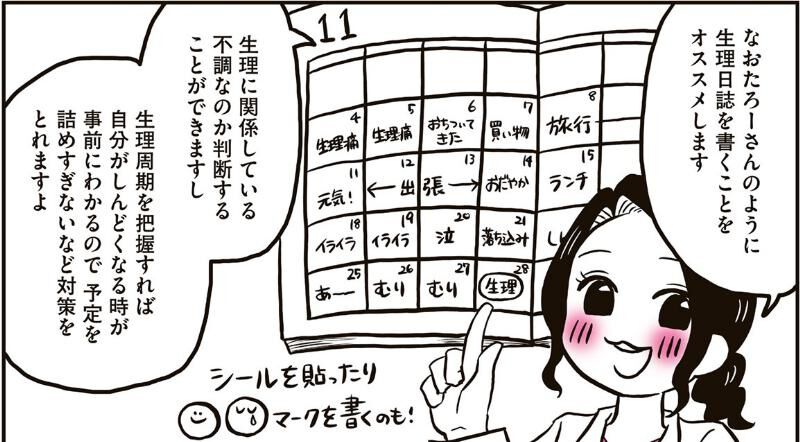 なおたろーさんのように
生理日誌を書くことを
オススメします
11
4
生理痛
5
生理痛
6
おちついて
きた
7
買い物
8
旅行
11
元気!
12
13
←出張→
14
おだやか
15
ランチ
18
イライラ
19
イライラ
20
泣
21
落ち込み
25
あー
26
むり
27
むり
28
生理
生理に関係している
不調なのか判断する
ことができますし
生理周期を把握すれば
自分がしんどくなる時が
事前にわかるので 予定を
詰めすぎないなど対策を
とれますよ
シールを貼ったり
マークを書くのも!